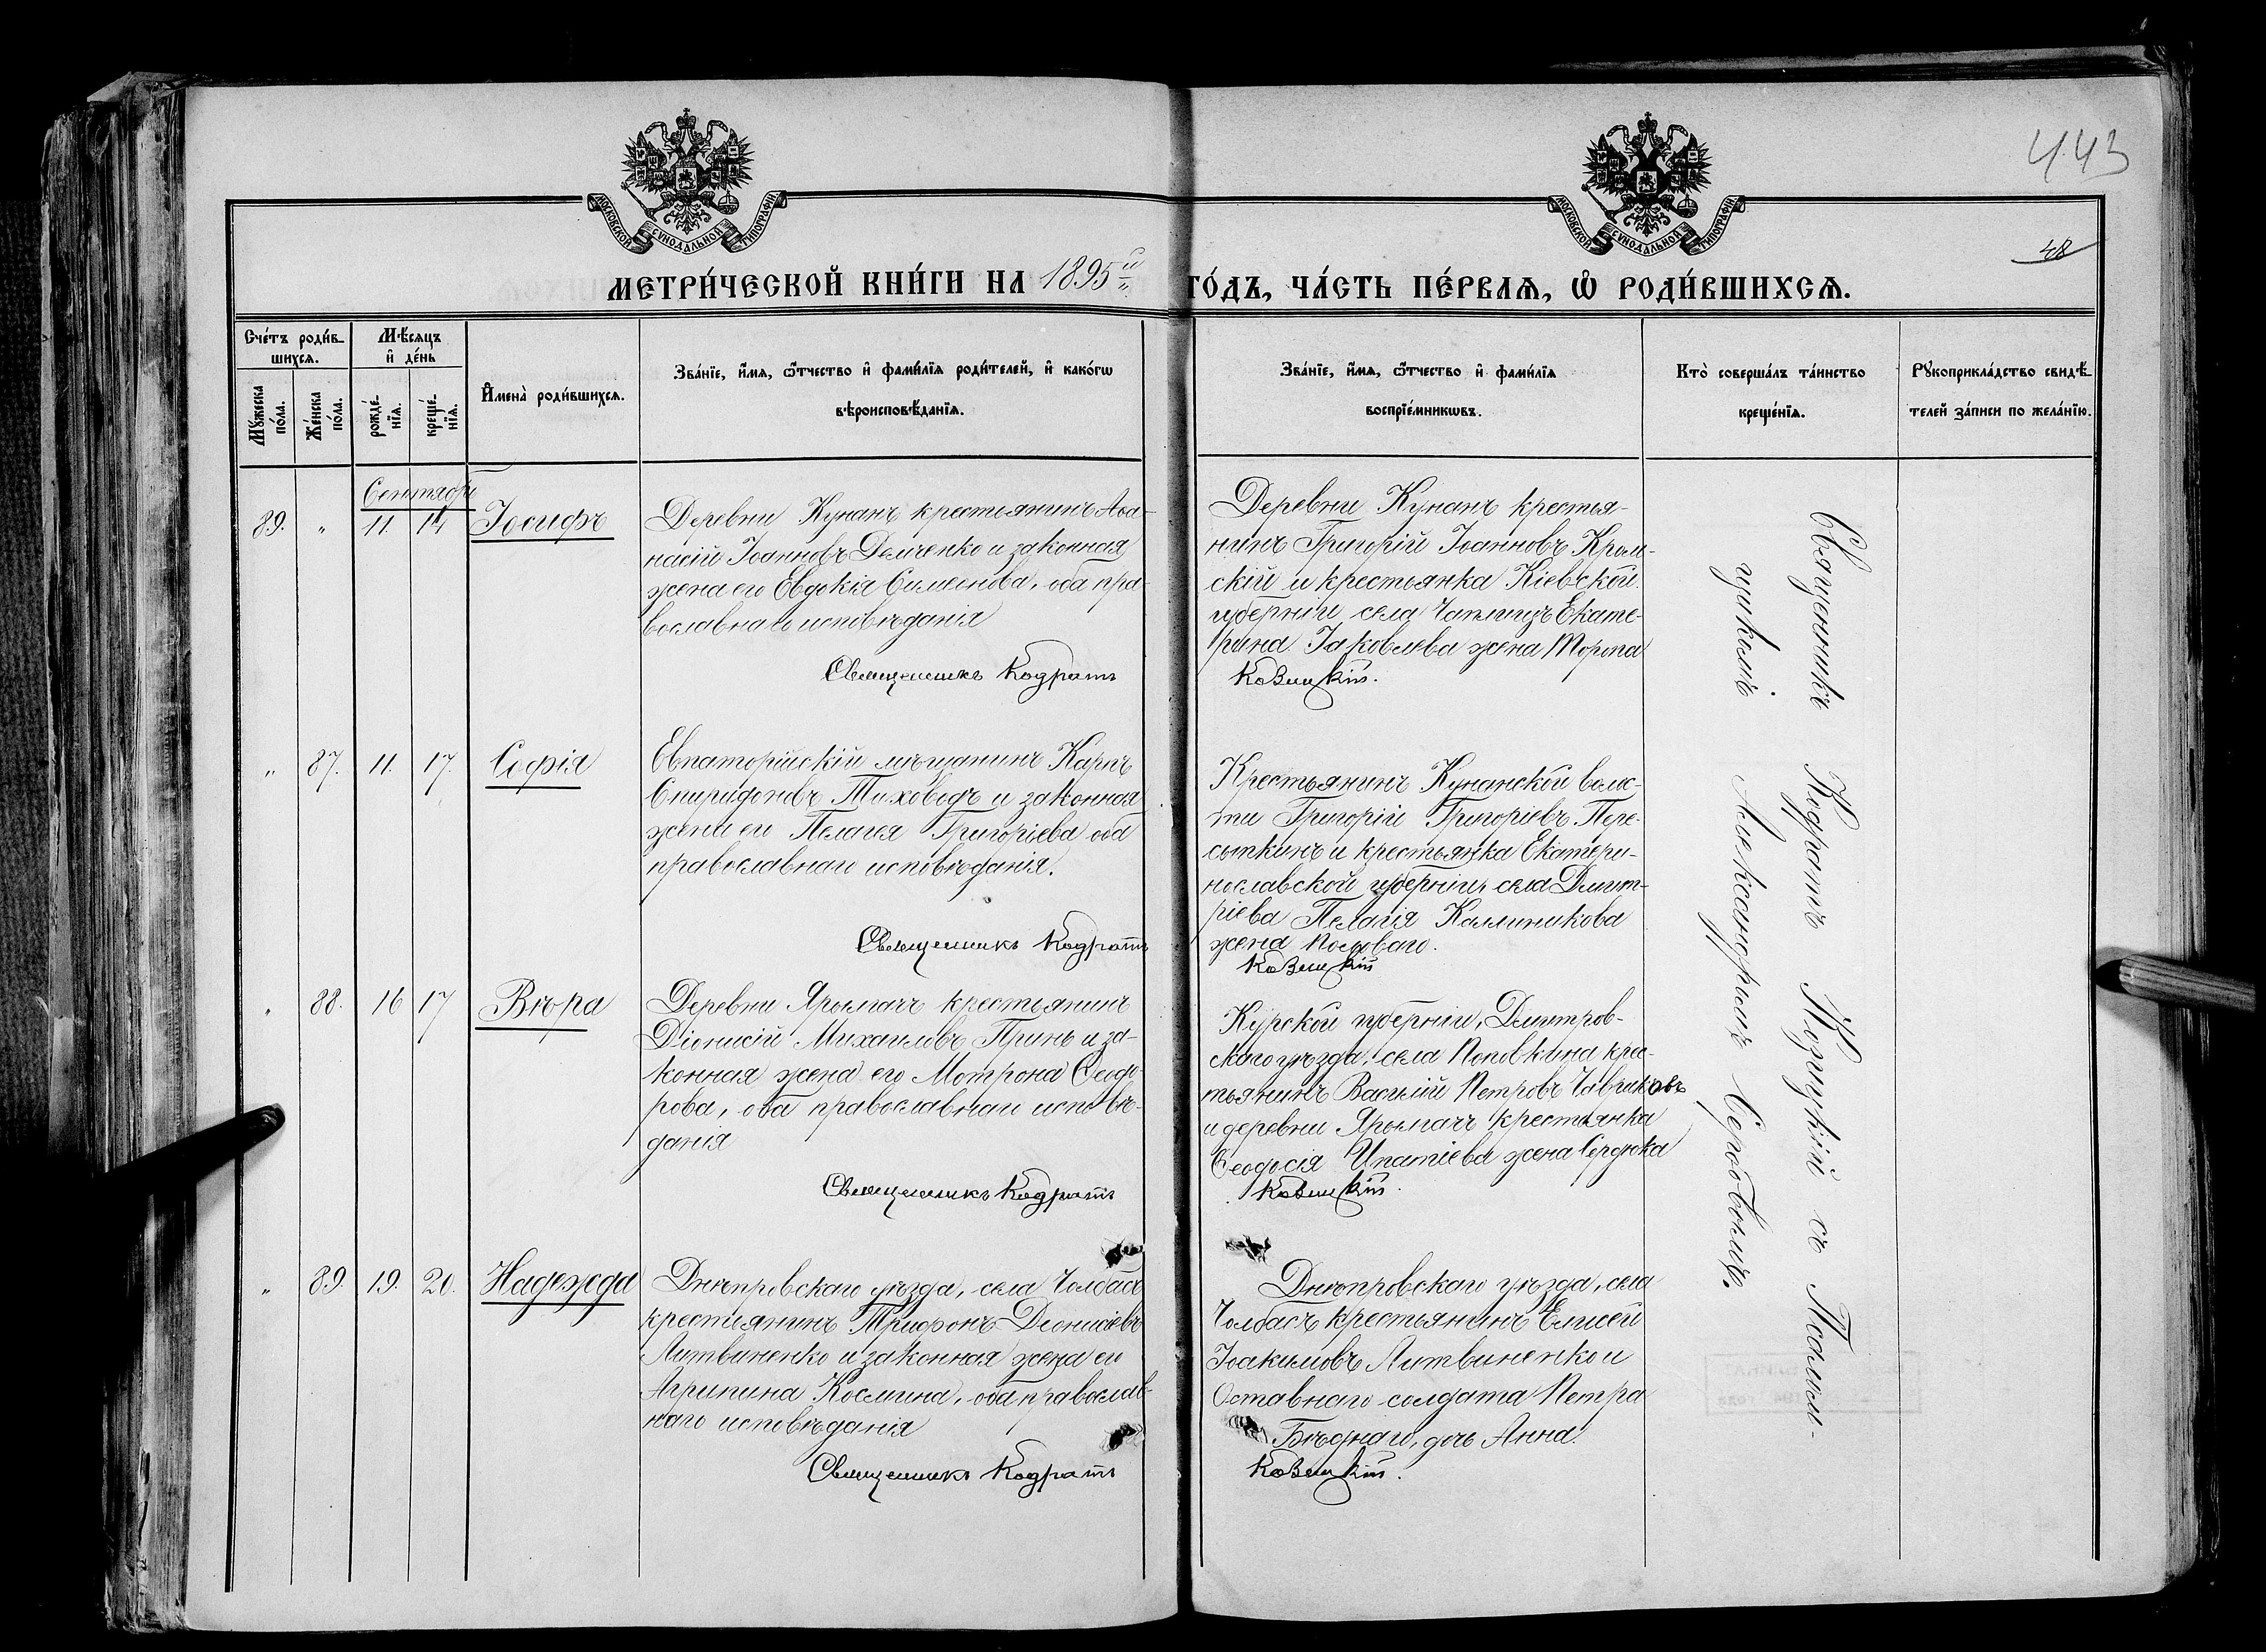 443
48
МОСКОВСКОЙ СУНОДАЛЬНОЙ ТИПОГРАФІИ.
МОСКОВСКОЙ СУНОДАЛЬНОЙ ТИПОГРАФІИ.
МЕТРИ́ЧЕСКОЙ КНИ́ГИ НА 1895й ГО́ДЪ, ЧА́СТЬ ПЕ́РВАѦ, Ѡ҆ РОДИ́ВШИХСѦ.
Сче́тъ роди́в-
шихсѧ.
Мꙋ́жеска по́ла.
Же́нска по́ла.
Мѣ́сѧцъ
и҆ де́нь
рожде́-
нїѧ.
креще́-
нїѧ.
И҆мена̀ роди́вшихсѧ.
Зва́нїе, и҆́мѧ, ѻ҆́тчество и҆ фами́лїѧ роди́телей, и҆ како́гѡ
вѣроисповѣ́данїѧ.
Зва́нїе, и҆́мѧ, ѻ҆́тчество и҆ фами́лїѧ
воспрїе́мникѡвъ.
Кто̀ соверша́лъ та́инство
креще́нїѧ.
Рꙋкоприкла́дство свидѣ́-
телей за́писи по жела́нїю.
Сентябрь
89. " 11. 14 Іосифъ
Деревни Кунанъ крестьянинъ Аѳа-
насій Іоанновъ Демченко и законная
жена его Евдокія Симеонова, оба пра-
вославнаго исповѣданія
Священникъ Кодратъ
Деревни Кунанъ крестья-
нинъ Григорій Іоанновъ Крым-
скій и крестьянка Кіевской
губерніи села Чаплицъ Екате-
рина Іаковлева жена Торопа
Козицкій.
" 87. 11. 17. Софія
Евпаторійскій мѣщанинъ Карпъ
Спиридоновъ Тиховодъ и законная
жена его Пелагея Григоріева оба
православнаго исповѣданія.
Священникъ Кодратъ
Крестьянинъ Кунанской волос-
ти Григорій Григоріевъ Пере-
сыпкинъ и крестьянка Екатери-
нославской губерніи села Дмит-
ріева Пелагія Каллиникова
жена
Козицкій
" 88. 16 17 Вѣра
Деревни Ярылгачъ крестьянинъ
Діонисій Михаиловъ Принь и за-
конная жена его Мотрона Ѳеодо-
рова, оба православнаго исповѣ-
данія
Священникъ Кодратъ
Курской губерніи, Дмитров-
скаго уѣзда, села Поповкина крес-
тьянинъ Василій Петровъ
и деревни Ярылгачъ крестьянка
Ѳеодосія Ипатіева жена Сердюка
Козицкій.
" 89. 19. 20. Надежда
Днѣпровскаго уѣзда, села Чолбасъ
крестьянинъ Трифонъ Діонисіевъ
Литвиненко и законная жена его
Агрипина Космина, оба православ-
наго исповѣданія
Священникъ Кодратъ
Днѣпровскаго уѣзда, села
Чолбасъ крестьянинъ Елисей
Іоакимовъ Литвиненко и
Оставнаго солдата Петра
Бѣднаго, дочь Анна.
Козицкій.
Священникъ Кодратъ Козицкій съ Псалом-
щикомъ Александромъ Серобовымъ.